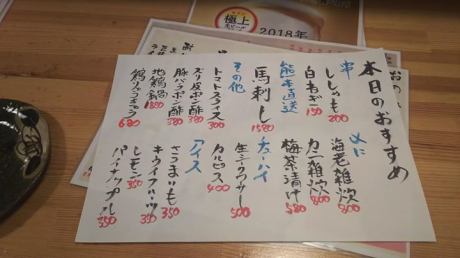 極上
2018年
本日のおすすめ
串
ししゃも 200
白ねぎ 150
熊本直送
馬刺し 1580
その他
トマトスライス 300
ズリ皮ポン酢 380
豚バラポン酢 380
地鶏鍋 850
680
〆に
海老雑炊
カニ雑炊
梅茶漬け
チューハイ
生シークワサー 500
カルピス 400
アイス
さつまいも 350
キウイフルーツ 350
レモン 350
パイナップル 350